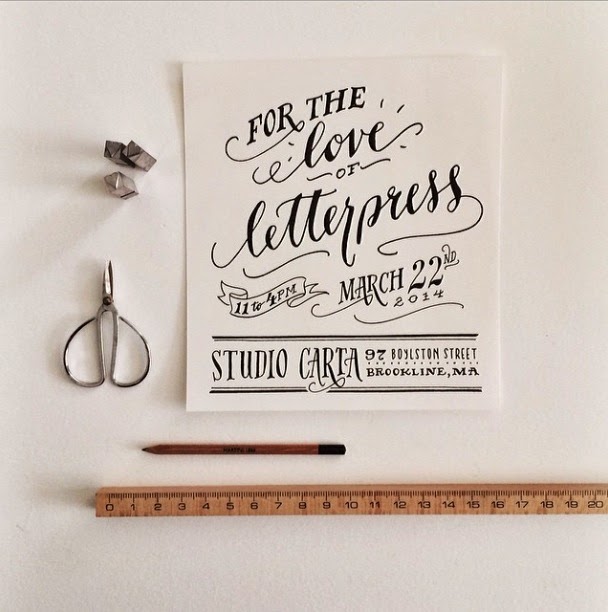 FOR THE
love
OF
letterpress
11 to 4 PM
MARCH 22ND
2014
STUDIO CARTA
97 BOYLSTON STREET
BROOKLINE, MA
0 1 2 3 4 5 6 7 8 9 10 11 12 13 14 15 16 17 18 19 20